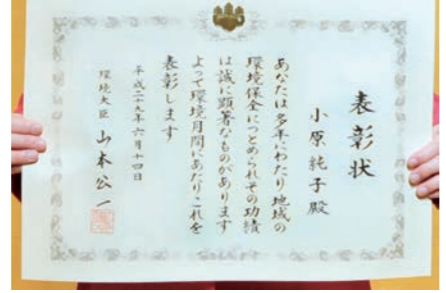 表彰状
小原純子殿
あなたは多年にわたり地域の
環境保全につとめられその功績
は誠に顕著なものがあります
よって環境月間にあたりこれを
表彰します
平成二十九年六月十四日
環境大臣 山本公一